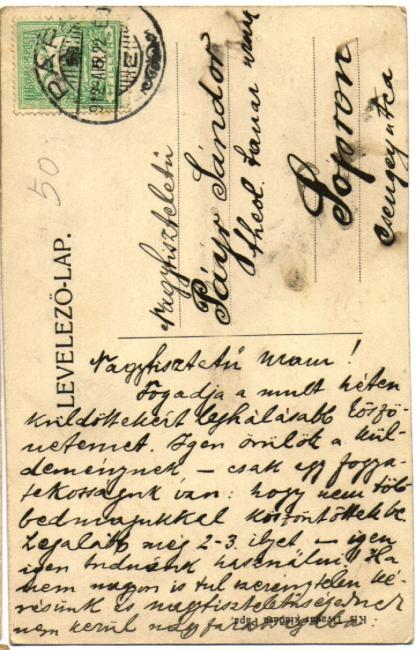 PÁPA
912
50
LEVELEZŐ-LAP.
Nagytiszteletű
Payr Sándor
theol. tanar urnak
Sopron
Csengey utca
Nagytisztetű Uram!
Fogadja a mult héten
küldöttekért leghálásabb köszö-
netemet. Igen örülök a kül-
deménynek – csak egy fogya-
tékosságuk van: hogy nem több
bednajukkal köszöntöttek be.
Legalább még 2-3 ilyet – igen
igen tudnánk használni! Ha
nem nagyon is tul szerénytelen ké-
résünk és nagytiszteletűségednek
nem kerül nagy
Kis Tivadar kiadása Pápa